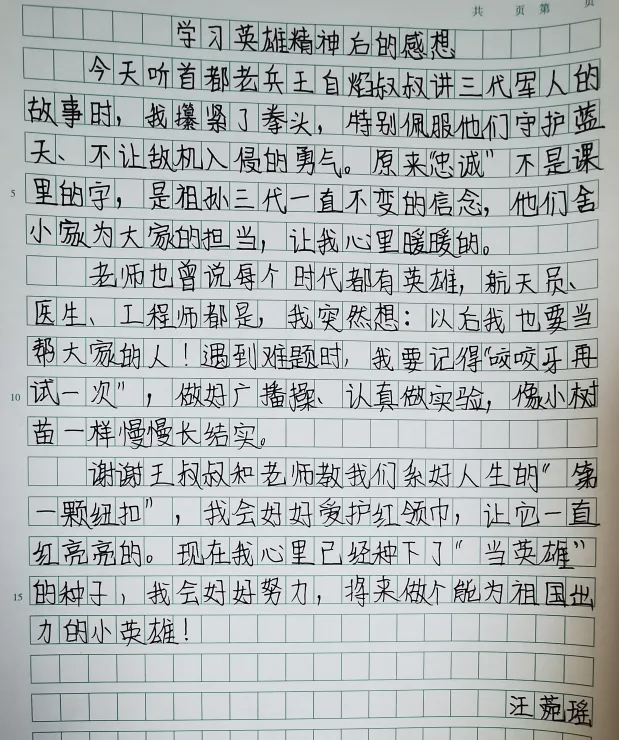 共 页 第 页
学习英雄精神后的感想
今天听首都老兵王自焰叔叔讲三代军人的
故事时，我攥紧了拳头，特别佩服他们守护蓝
天、不让敌机入侵的勇气。原来“忠诚”不是课
5 里的字，是祖孙三代一直不变的信念，他们舍
小家为大家的担当，让我心里暖暖的。
老师也曾说每个时代都有英雄，航天员、
医生、工程师都是，我突然想：以后我也要当
帮大家的人！遇到难题时，我要记得“咬咬牙再
10 试一次”，做好广播操、认真做实验，像小树
苗一样慢慢长结实。
谢谢王叔叔和老师教我们系好人生的“第
一颗纽扣”，我会好好爱护红领巾，让它一直
红亮亮的。现在我心里已经种下了“当英雄”
15 的种子，我会好好努力，将来做个能为祖国出
力的小英雄！
汪菀瑶